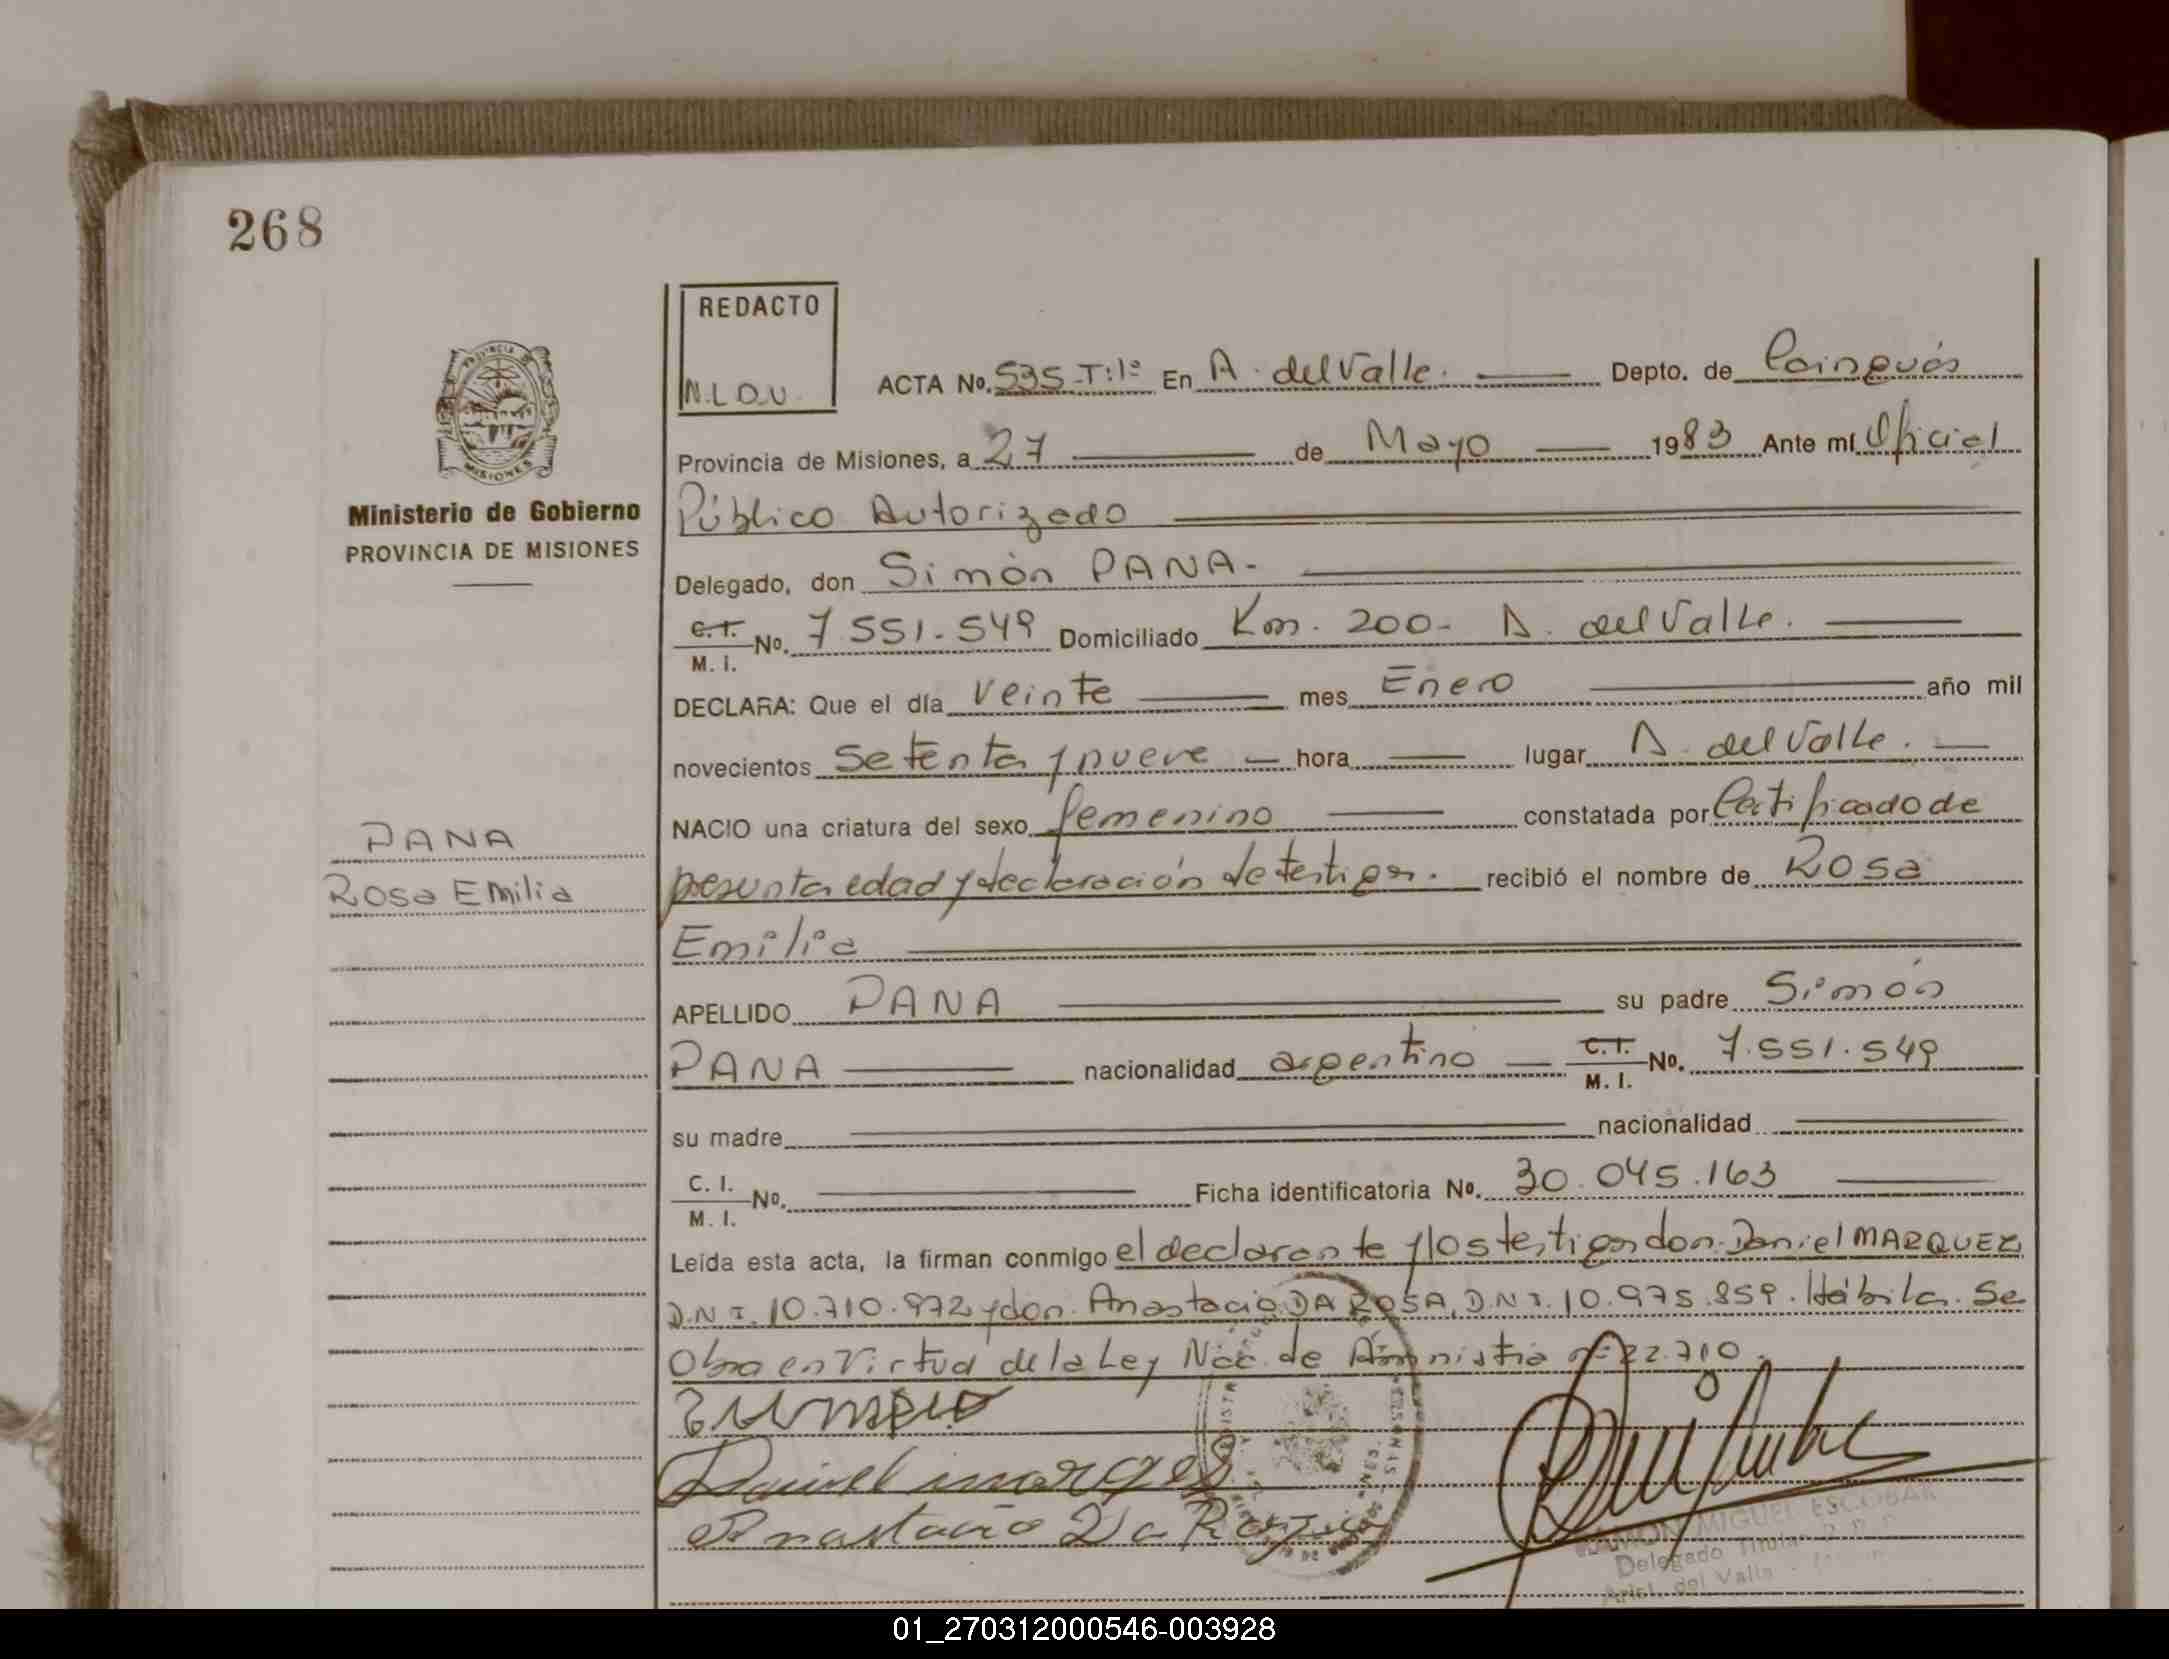 268
REDACTO
N.L.D.V.
ACTA No. 535-T:1º En A. del Valle. Depto. de Cainguás
Provincia de Misiones, a 27 de Mayo 1983 Ante mí Oficial
Público Autorizado
Delegado, don Simón PANA.
C. I. M. I. No. 7.551.549 Domiciliado Km. 200- A. del Valle.
DECLARA: Que el día veinte mes Enero año mil
novecientos setenta y nueve hora lugar A. del Valle.
NACIO una criatura del sexo femenino constatada por Certificado de
presunta edad y declaración de testigos. recibió el nombre de Rosa
Emilia
APELLIDO PANA su padre Simón
PANA nacionalidad argentino C. I. M. I. No. 7.551.549
su madre nacionalidad
C. I. M. I. No. Ficha identificatoria No. 30.045.163
Leída esta acta, la firman conmigo el declarante y los testigos don Daniel MARQUEZ
D.N.I. 10.710.972 y don. Anastacio DA ROSA, D.N.I. 10.975.859. Hábiles. Se
Obra en Virtud de la Ley Nac. de Amnistia nº 22.710.
Daniel marques
Anastacio Da Rosa
RAMON MIGUEL ESCOBAR
Delegado Titular
Arist. del Valle
PROVINCIA DE
MISIONES
Ministerio de Gobierno
PROVINCIA DE MISIONES
PANA
Rosa Emilia
01_270312000546-003928